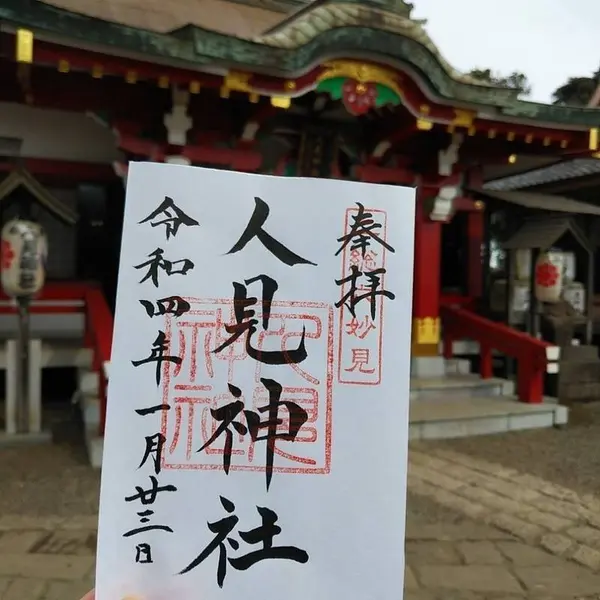 奉拝
妙見
人見神社
令和四年一月廿三日